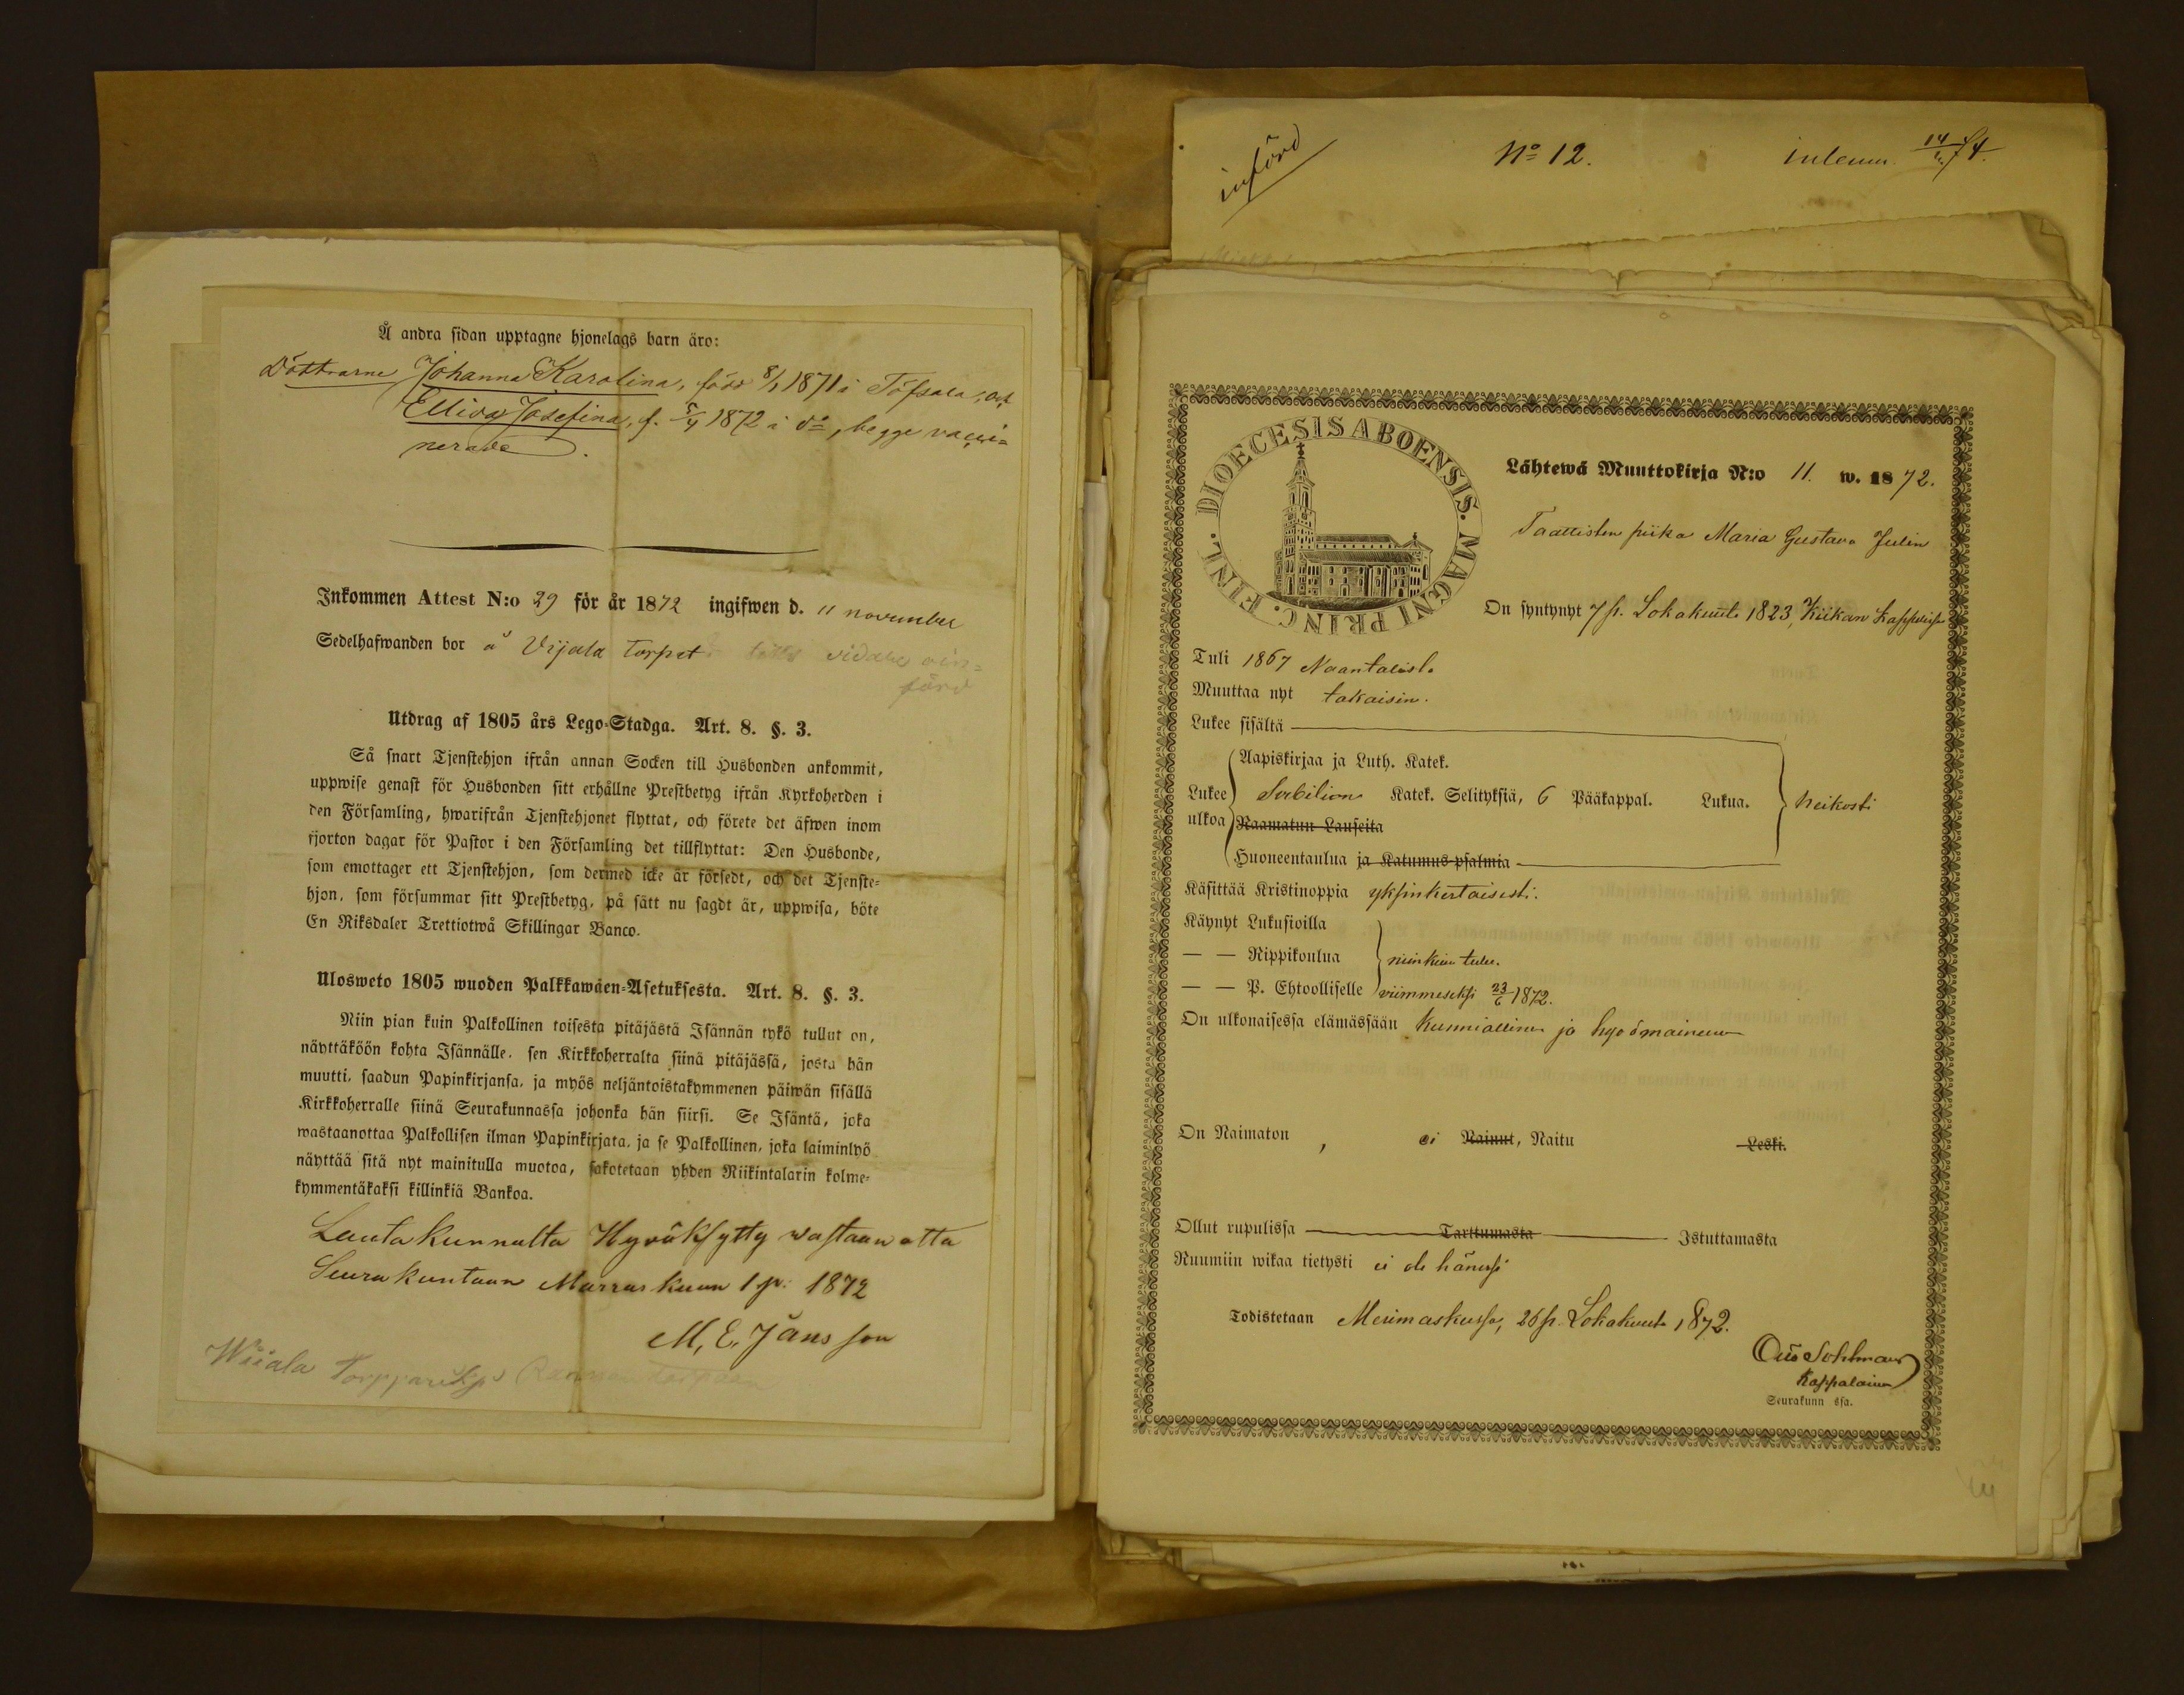 Å andra sidan upptagne hjonelags barn äro:
Döttrarne Johanna Karolina, född 8/1 1871 i Töfsala, och
Elliva Josefina, f. 5/4 1872 i do, begge vacci=
nerade.
Inkommen Attest N:o 29 för år 1872 ingifwen d. 11 november
Sedelhafwanden bor å Vijala torpet tills vidare oin=
förd
Utdrag af 1805 års Lego-Stadga. Art. 8. §. 3.
Så snart Tjenstehjon ifrån annan Socken till Husbonden ankommit,
uppwise genast för Husbonden sitt erhållne Prestbetyg ifrån Kyrkoherden i
den Församling, hwarifrån Tjenstehjonet flyttat, och förete det äfwen inom
fjorton dagar för Pastor i den Församling det tillflyttat: Den Husbonde,
som emottager ett Tjenstehjon, som dermed icke är försedt, och det Tjenste=
hjon, som försummar sitt Prestbetyg, på sätt nu sagdt är, uppwisa, böte
En Riksdaler Trettiotwå Skillingar Banco.
Ulosweto 1805 wuoden Palkkawäen=Asetuksesta. Art. 8. §. 3.
Niin pian kuin Palkollinen toisesta pitäjästä Isännän tykö tullut on,
näyttäköön kohta Isännälle, sen Kirkkoherralta siinä pitäjässä, josta hän
muutti, saadun Papinkirjansa, ja myös neljäntoistakymmenen päiwän sisällä
Kirkkoherralle siinä Seurakunnassa johonka hän siirsi. Se Isäntä, joka
wastaanottaa Palkollisen ilman Papinkirjata, ja se Palkollinen, joka laiminlyö
näyttää sitä nyt mainitulla muotoa, sakotetaan yhden Riikintalarin kolme=
kymmentäkaksi killinkiä Bankoa.
Lautakunnalta Hyväksytty wastaan otta
Seurakuntaan Marraskuun 1 p: 1872
M, E. Jansson
Wiiala
införd
No 12.
inkom. 14/ 74.
DIOECESIS ABOENSIS. MAGNI PRINC. FINL.
Lähtewä Muuttokirja N:o 11. w. 1872.
Taattisten piika Maria Gustava Julin
On syntynyt 7 p. Lokakuuta 1823, Kiikan Kappelissa
Tuli 1867 Naantalista
Muuttaa nyt takaisin.
Lukee sisältä
Aapiskirjaa ja Luth. Katek.
Lukee ulkoa Svebilion Katek. Selityksiä, 6 Pääkappal. Lukua. heikosti
Raamatun Lauseita
Huoneentaulua ja Katumus-psalmia
Käsittää Kristinoppia yksinkertaisesti.
Käynyt Lukusioilla
— — Rippikoulua niinkuin tulee.
— — P. Ehtoolliselle viimmeseksi 23/6 1872.
On ulkonaisessa elämässään kunniallinen ja hyvämaineinen
On Naimaton, ei Nainut, Naitu Leski.
Ollut rupulissa Tarttumasta Istuttamasta
Ruumiin wikaa tietysti ei ole hänessä
Todistetaan Merimaskussa, 26 p. Lokakuuta 1872.
Sohlman
Kappalainen
Seurakunn ssa.